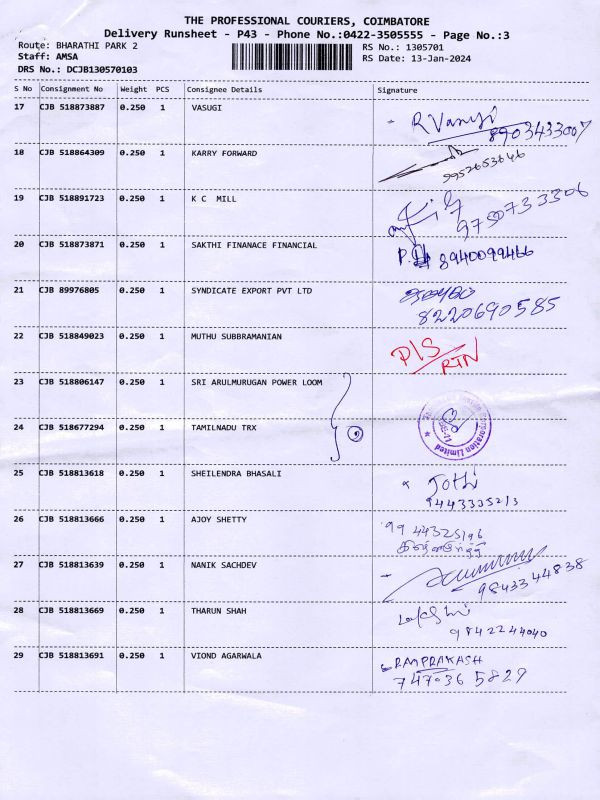 THE PROFESSIONAL COURIERS, COIMBATORE
Delivery Runsheet - P43 - Phone No.:0422-3505555 - Page No.:3
Route: BHARATHI PARK 2 RS No.: 1305701
Staff: AMSA RS Date: 13-Jan-2024
DRS No.: DCJB130570103
S No Consignment No Weight PCS Consignee Details Signature
17 CJB 518873887 0.250 1 VASUGI R Vasugi
8903433007
18 CJB 518864309 0.250 1 KARRY FORWARD
9952653646
19 CJB 518891723 0.250 1 K C MILL
9750733306
20 CJB 518873871 0.250 1 SAKTHI FINANACE FINANCIAL 8940099466
21 CJB 89976805 0.250 1 SYNDICATE EXPORT PVT LTD
8220690585
22 CJB 518849023 0.250 1 MUTHU SUBBRAMANIAN D/S
RTN
23 CJB 518806147 0.250 1 SRI ARULMURUGAN POWER LOOM
24 CJB 518677294 0.250 1 TAMILNADU TRX 2
Corporation Limited
25 CJB 518813618 0.250 1 SHEILENDRA BHASALI Jothi
26 CJB 518813666 0.250 1 AJOY SHETTY 9944325196
27 CJB 518813639 0.250 1 NANIK SACHDEV
9843344838
28 CJB 518813669 0.250 1 THARUN SHAH
9842244040
29 CJB 518813691 0.250 1 VIOND AGARWALA RAMPRAKASH
7470365829